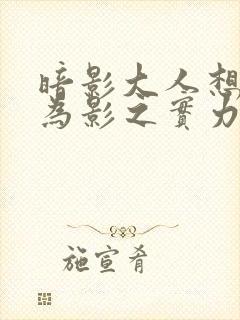 暗影大人想
為影之實力
施宣肴